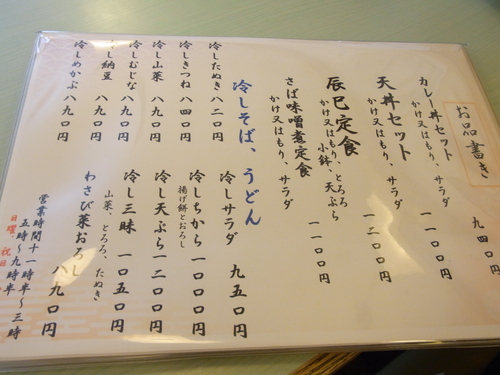 お品書き
カレー丼セット 九四〇円
かけ又はもり、サラダ
天丼セット 一一〇〇円
かけ又はもり、サラダ
辰巳定食 一二〇〇円
かけ又はもり、とろろ
小鉢、天ぷら
さば味噌煮定食 一一〇〇円
かけ又はもり、サラダ
冷しそば、うどん
冷したぬき 八二〇円
冷しきつね 八四〇円
冷し山菜 八九〇円
冷しむじな 八九〇円
冷し納豆 八九〇円
冷しめかぶ 八九〇円
冷しサラダ 九五〇円
冷しちから 一〇〇〇円
揚げ餅とおろし
冷し天ぷら 一二〇〇円
冷し三昧 一〇五〇円
山菜、とろろ、たぬき
わさび菜おろし 八九〇円
営業時間十一時半〜三時
五時〜九時半
日曜、祝日